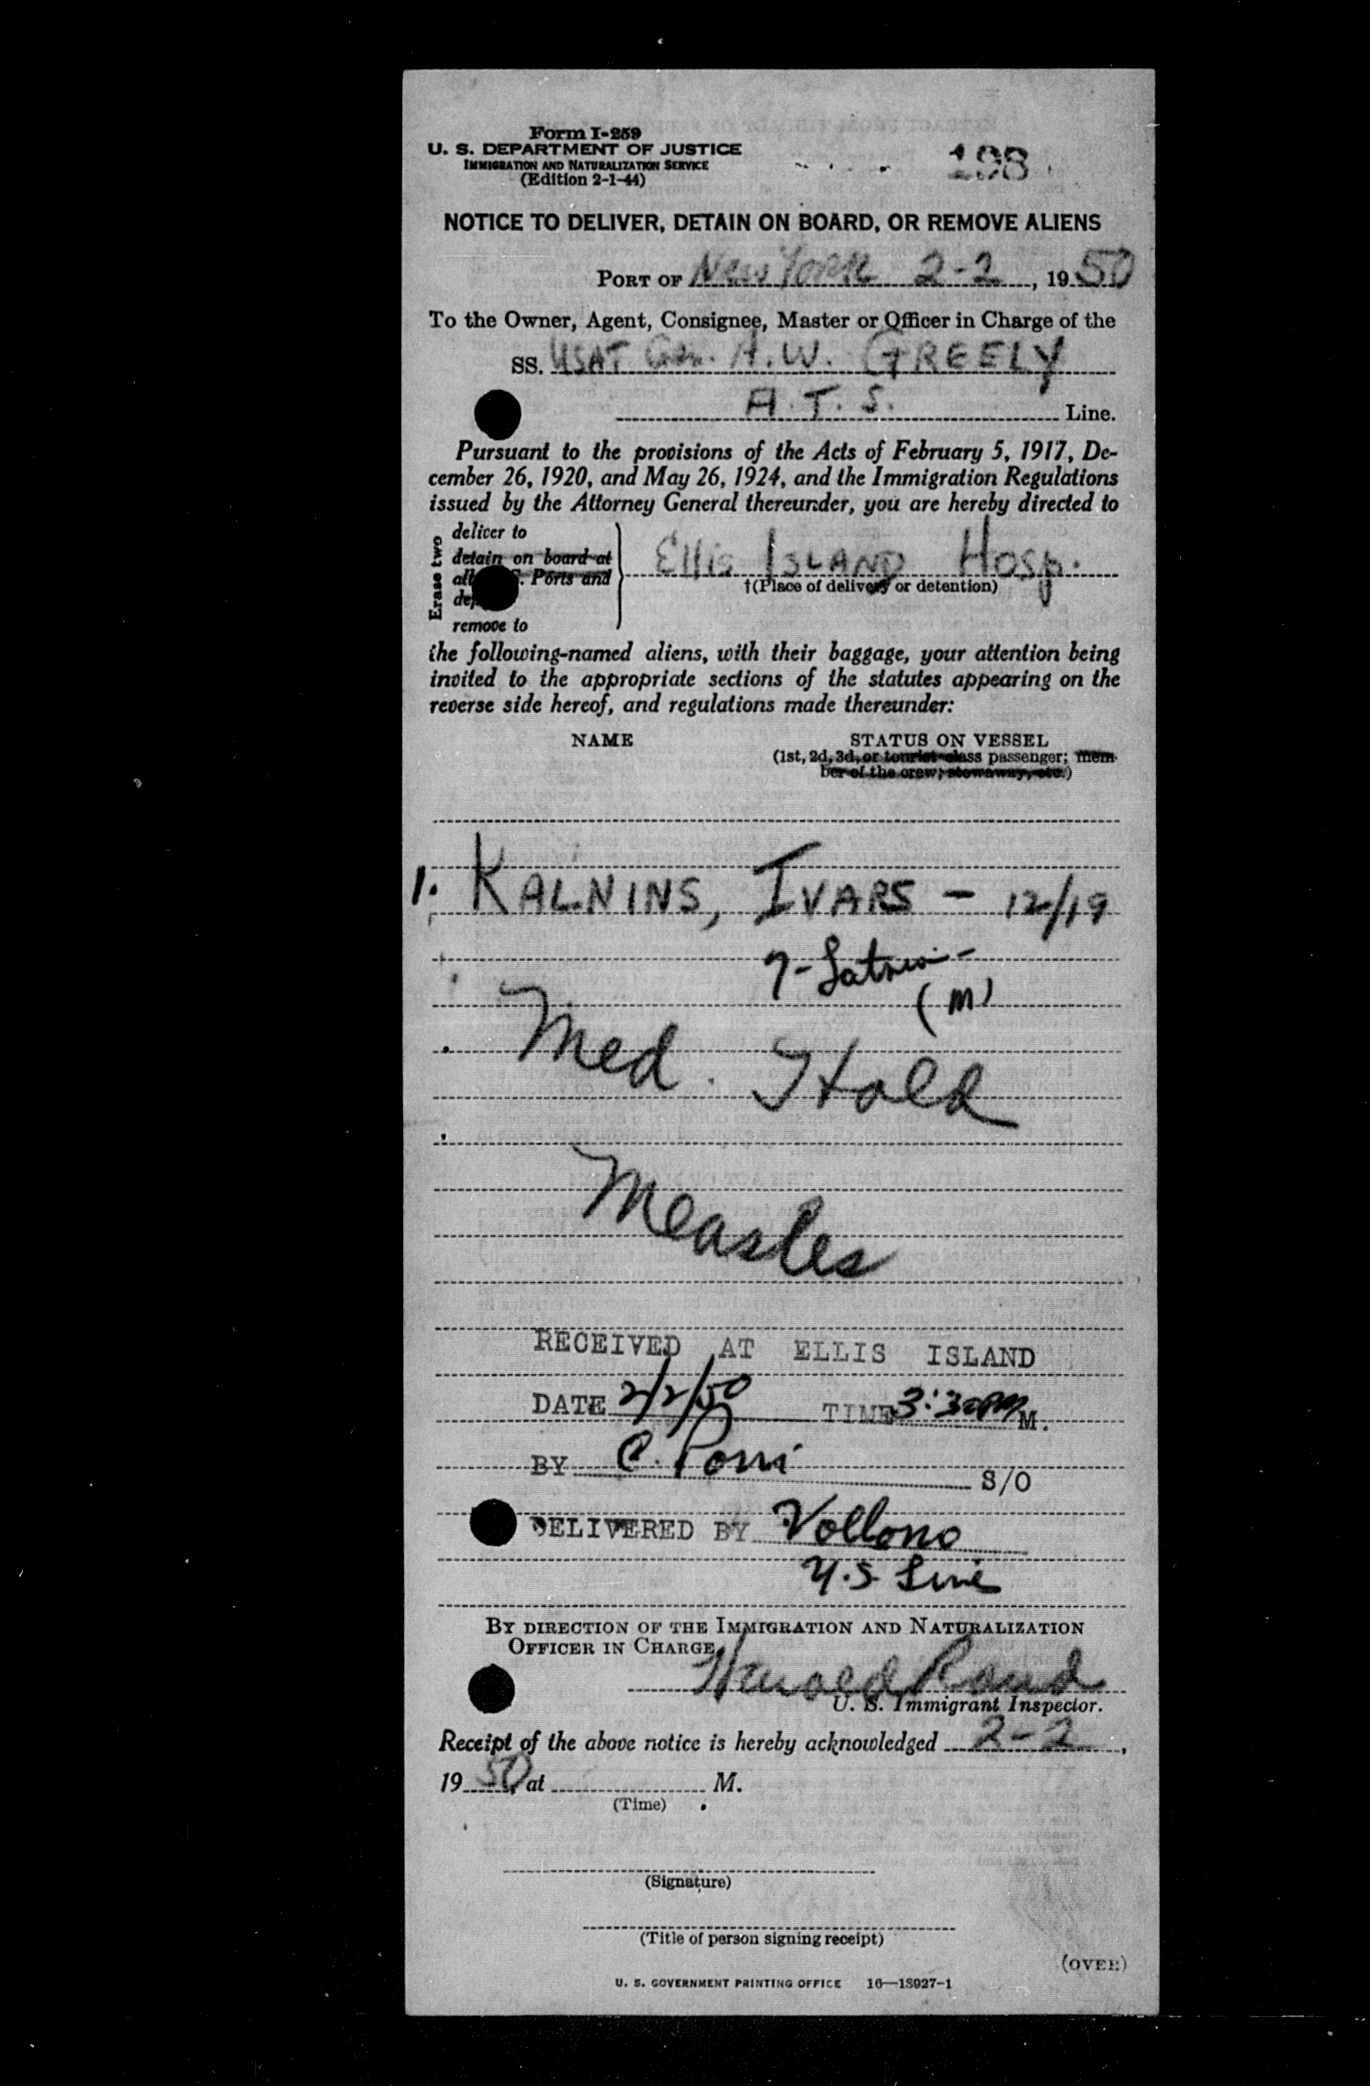 Form I-259
U. S. DEPARTMENT OF JUSTICE
IMMIGRATION AND NATURALIZATION SERVICE
(Edition 2-1-44)
198
NOTICE TO DELIVER, DETAIN ON BOARD, OR REMOVE ALIENS
PORT OF New York 2-2, 1950
To the Owner, Agent, Consignee, Master or Officer in Charge of the
SS. USAT Gen. A.W. GREELY
A.T.S. Line.
Pursuant to the provisions of the Acts of February 5, 1917, De-
cember 26, 1920, and May 26, 1924, and the Immigration Regulations
issued by the Attorney General thereunder, you are hereby directed to
Erase two
deliver to
detain on board at
all S. Ports and
remove to
Ellis ISLAND Hosp.
†(Place of delivery or detention)
the following-named aliens, with their baggage, your attention being
invited to the appropriate sections of the statutes appearing on the
reverse side hereof, and regulations made thereunder:
NAME
STATUS ON VESSEL
(1st, 2d, 3d, or tourist class passenger; mem-
ber of the crew; stowaway, etc.)
1. KALNINS, IVARS - 12/19
7-Latvia-
(M)
Med. Hold
Measles
RECEIVED AT ELLIS ISLAND
DATE 2/2/50 TIME 3:30PM M.
BY C. S/O
DELIVERED BY Vollono
U.S. Line
BY DIRECTION OF THE IMMIGRATION AND NATURALIZATION
OFFICER IN CHARGE,
Harold Rand
U. S. Immigrant Inspector.
Receipt of the above notice is hereby acknowledged 2-2,
1950, at M.
(Time)
(Signature)
(Title of person signing receipt)
(OVER)
U. S. GOVERNMENT PRINTING OFFICE 16—18027-1